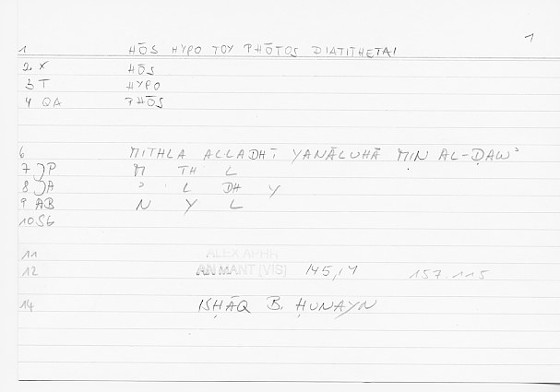 1
1 HŌS HYPO TOY PHŌTOS DIATITHETAI
2 X HŌS
3 T HYPO
4 QA PHŌS
6 MITHLA ALLADHĪ YANĀLUHĀ MIN AL-ḌAWʾ
7 JP M TH L
8 JA ʾ L DH Y
9 AB N Y L
10 SG
11 ALEX APHR
12 AN MANT [VIS] 145,17 157 115
14 ISḤĀQ B. ḤUNAYN